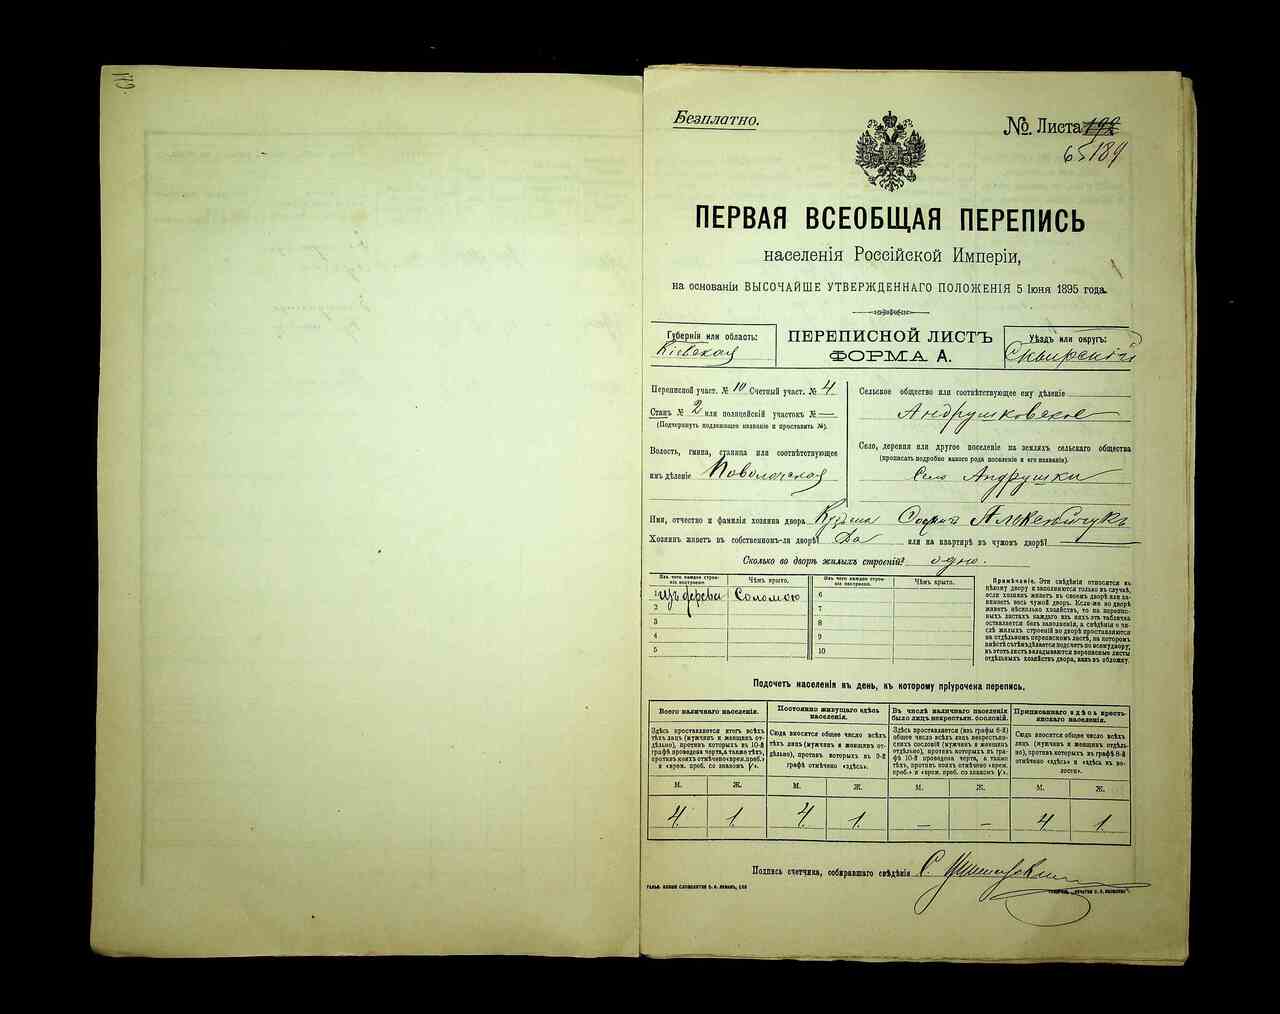 Безплатно.
№ Листа 192
65 189
ПЕРВАЯ ВСЕОБЩАЯ ПЕРЕПИСЬ
населенія Россійской Имперіи,
на основаніи ВЫСОЧАЙШЕ УТВЕРЖДЕННАГО ПОЛОЖЕНІЯ 5 Іюня 1895 года.
Губернія или область:
Кіевская
ПЕРЕПИСНОЙ ЛИСТЪ
ФОРМА А.
Уѣздъ или округъ:
Сквирскій
Переписной участ. № 10 Счетный участ. № 4
Станъ № 2 или полицейскій участокъ № —
(Подчеркнуть подлежащее названіе и проставить №).
Волость, гмина, станица или соотвѣтствующее
имъ дѣленіе Поволочская
Сельское общество или соотвѣтствующее ему дѣленіе
Андрушковское
Село, деревня или другое поселеніе на земляхъ сельскаго общества
(прописать подробно какого рода поселеніе и его названіе).
Село Андрушки
Имя, отчество и фамилія хозяина двора Кузьма
Хозяинъ живетъ въ собственномъ-ли дворѣ? Да или на квартирѣ въ чужомъ дворѣ?
Сколько во дворѣ жилыхъ строеній? одно.
Изъ чего каждое строеніе построено. Чѣмъ крыто. Изъ чего каждое строеніе построено. Чѣмъ крыто.
1 изъ дерева Соломою 6
2 7
3 8
4 9
5 10
Примѣчаніе. Эти свѣдѣнія относятся къ
цѣлому двору и заполняются только въ случаѣ,
если хозяинъ живетъ въ своемъ дворѣ или занимаетъ
весь чужой дворъ. Если-же во дворѣ
живетъ нѣсколько хозяйствъ, то на переписныхъ
листахъ каждаго изъ нихъ эта табличка
оставляется безъ заполненія, а свѣдѣнія о числѣ
жилыхъ строеній во дворѣ проставляются
на отдѣльномъ переписномъ листѣ, на которомъ
вмѣстѣ съ тѣмъ дѣлается подсчетъ по всему двору;
въ этотъ листъ вкладываются переписные листы
отдѣльныхъ хозяйствъ двора, какъ въ обложку.
Подсчетъ населенія въ день, къ которому пріурочена перепись.
Всего наличнаго населенія.
Здѣсь проставляется итогъ всѣхъ
тѣхъ лицъ (мужчинъ и женщинъ отдѣльно),
противъ которыхъ въ 10-й
графѣ проведена черта, а также тѣхъ,
противъ коихъ отмѣчено «врем. преб.»
и «врем. преб. со знакомъ V».
Постоянно живущаго здѣсь населенія.
Сюда вносится общее число всѣхъ
тѣхъ лицъ (мужчинъ и женщинъ отдѣльно),
противъ которыхъ въ 9-й
графѣ отмѣчено «здѣсь».
Въ числѣ наличнаго населенія
было лицъ некрестьян. сословій.
Здѣсь проставляется (изъ графы 6-й)
общее число всѣхъ лицъ некрестьянскихъ
сословій (мужчинъ и женщинъ
отдѣльно), противъ которыхъ въ графѣ
10-й проведена черта, а также
тѣхъ, противъ коихъ отмѣчено «врем.
преб.» и «врем. преб. со знакомъ V».
Приписаннаго здѣсь крестьянскаго населенія.
Сюда вносится общее число всѣхъ
лицъ (мужчинъ и женщинъ отдѣльно),
противъ которыхъ въ графѣ 8-й
отмѣчено «здѣсь» и «здѣсь въ волости».
М. Ж. М. Ж. М. Ж. М. Ж.
4 1 4 1 – – 4 1
Подпись счетчика, собиравшаго свѣдѣнія С.